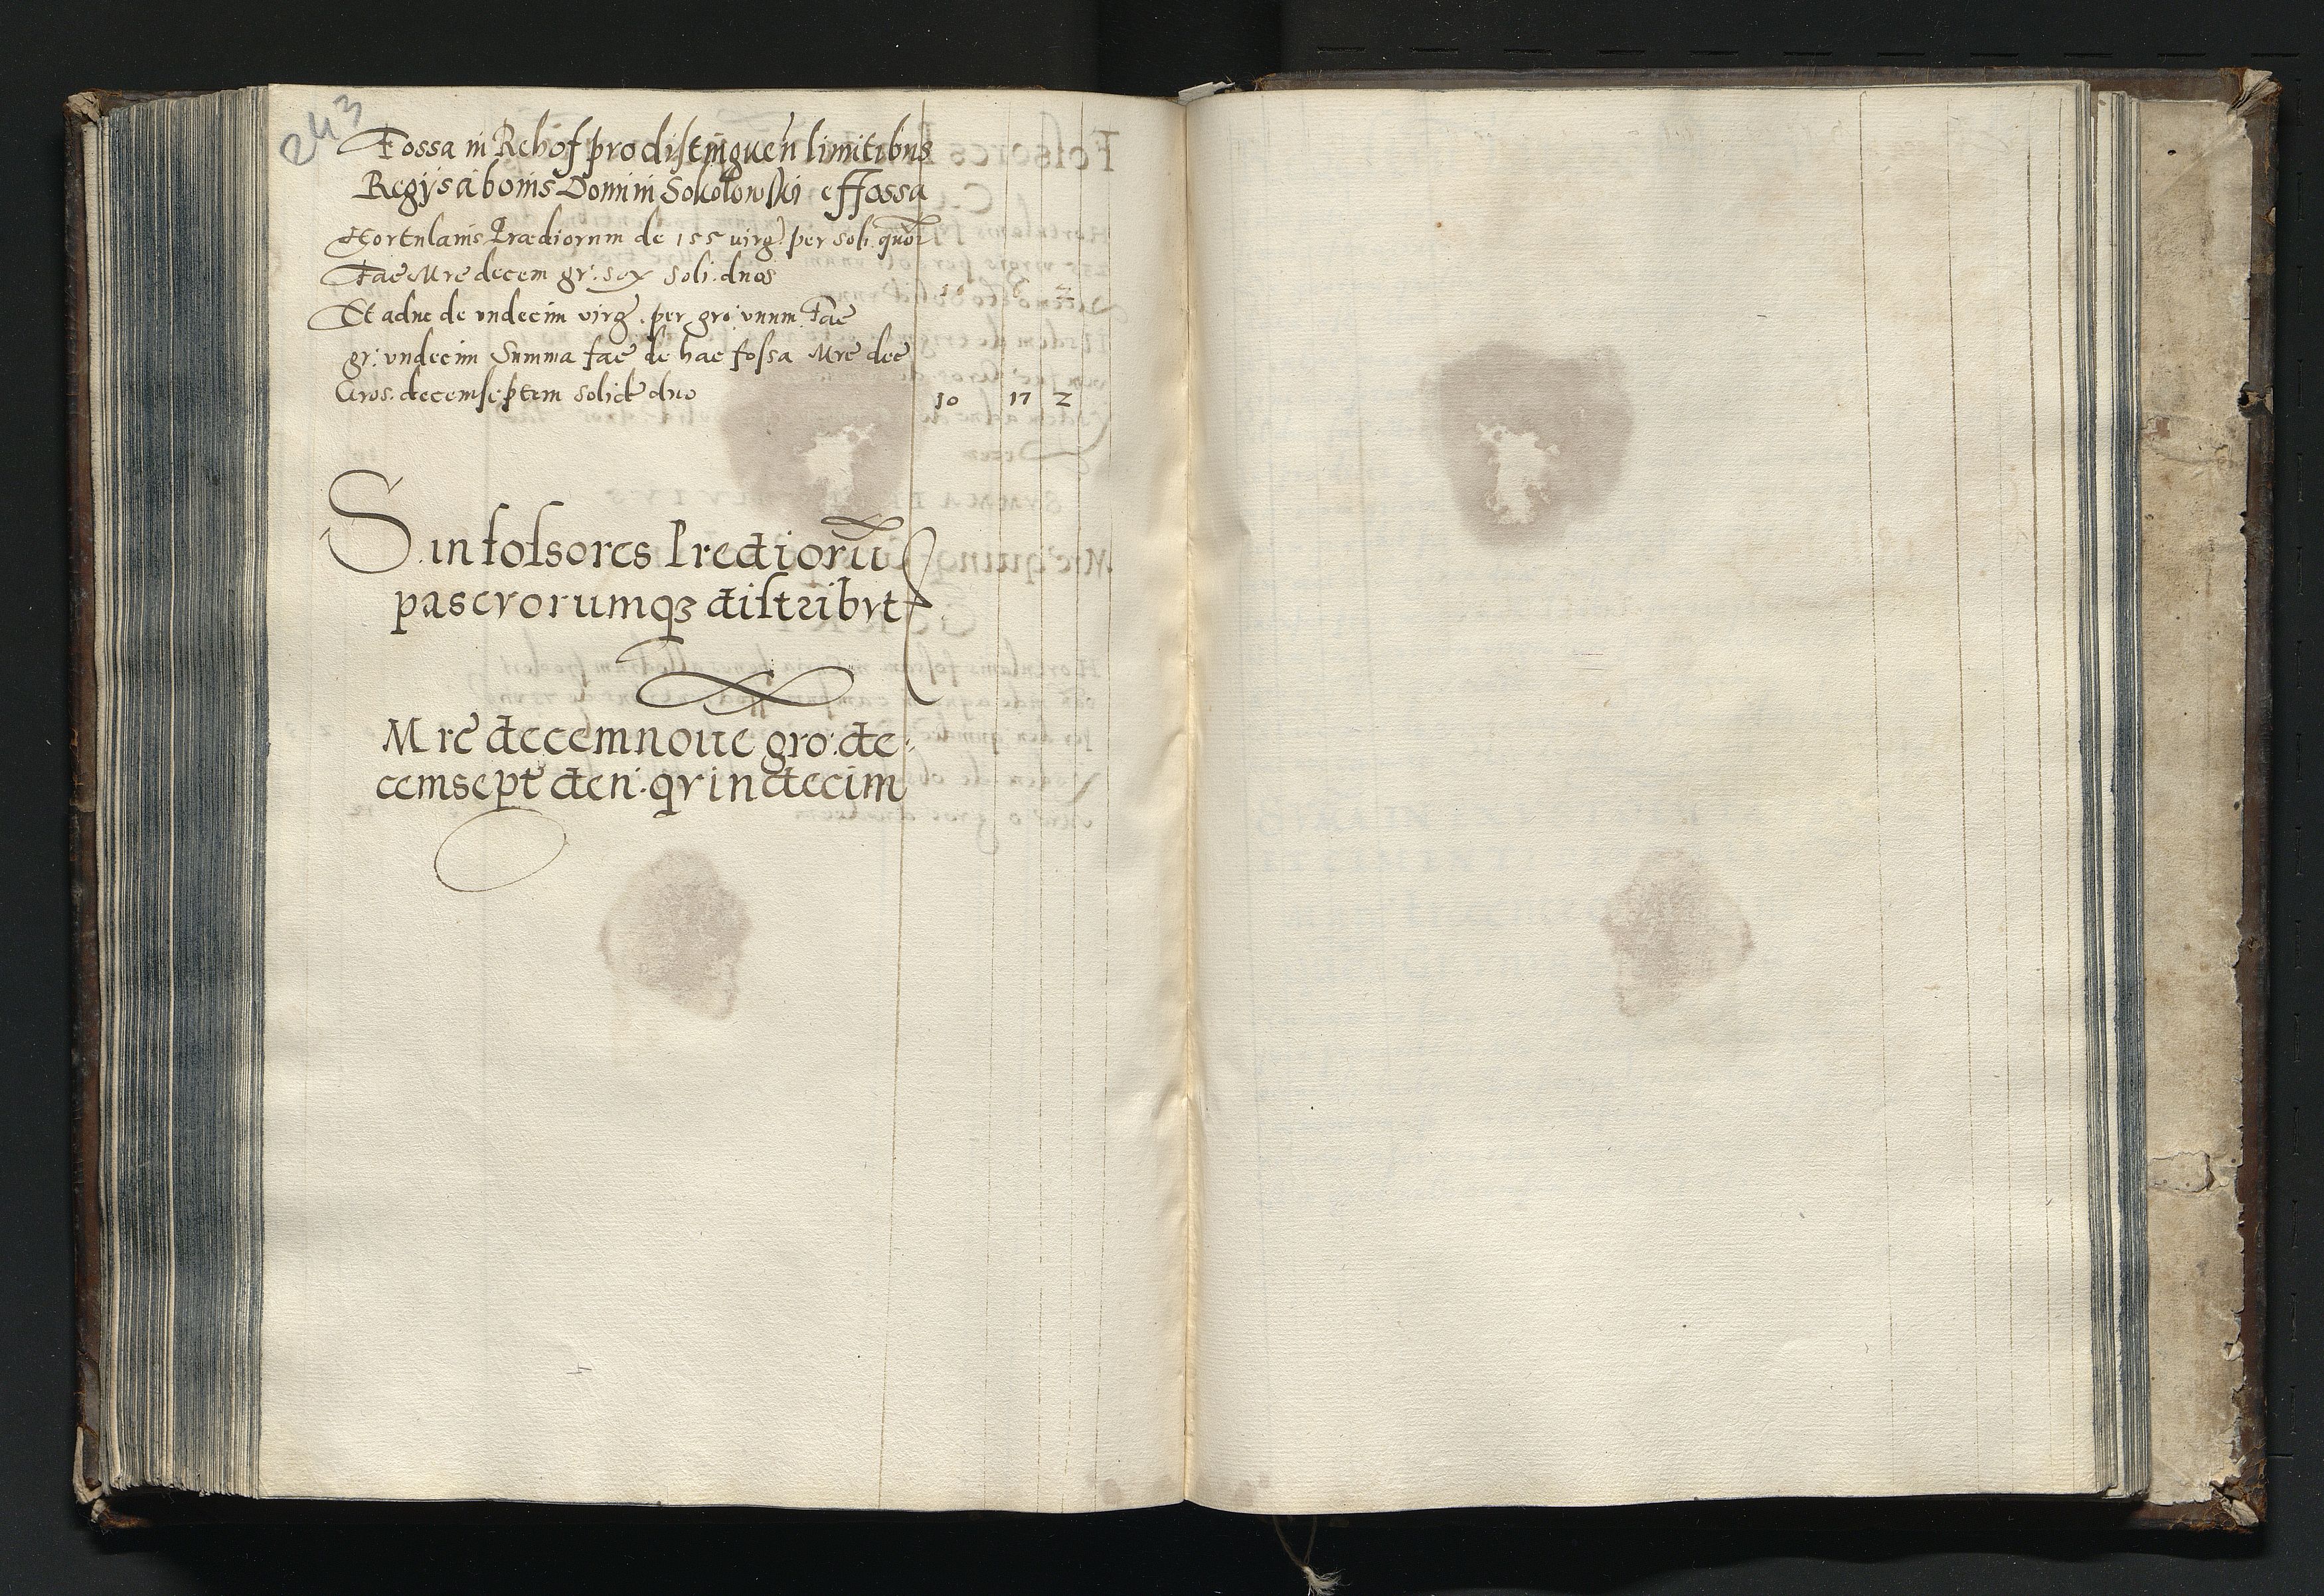 243
Fossa in Rehof pro distinguen̄ limitibus
Regijs a bonis Domini Sokolowski effossa
Hortulanis Prædiorum de 155 virg: per soli. quor
Fac Mrc decem gr: sex soli: duos 10 6 2
Et adhc de vndecim virg. per gro: vnum Fac
gr: vndecim Summa fac de hac fossa Mrc dec
Gros. decemseptem solid duo 10 17 2
S. in fossores Prediorū
pascvorumqꝫ distribvt
Mrc decemnoue gro: de-
cemsept den: qvindecim